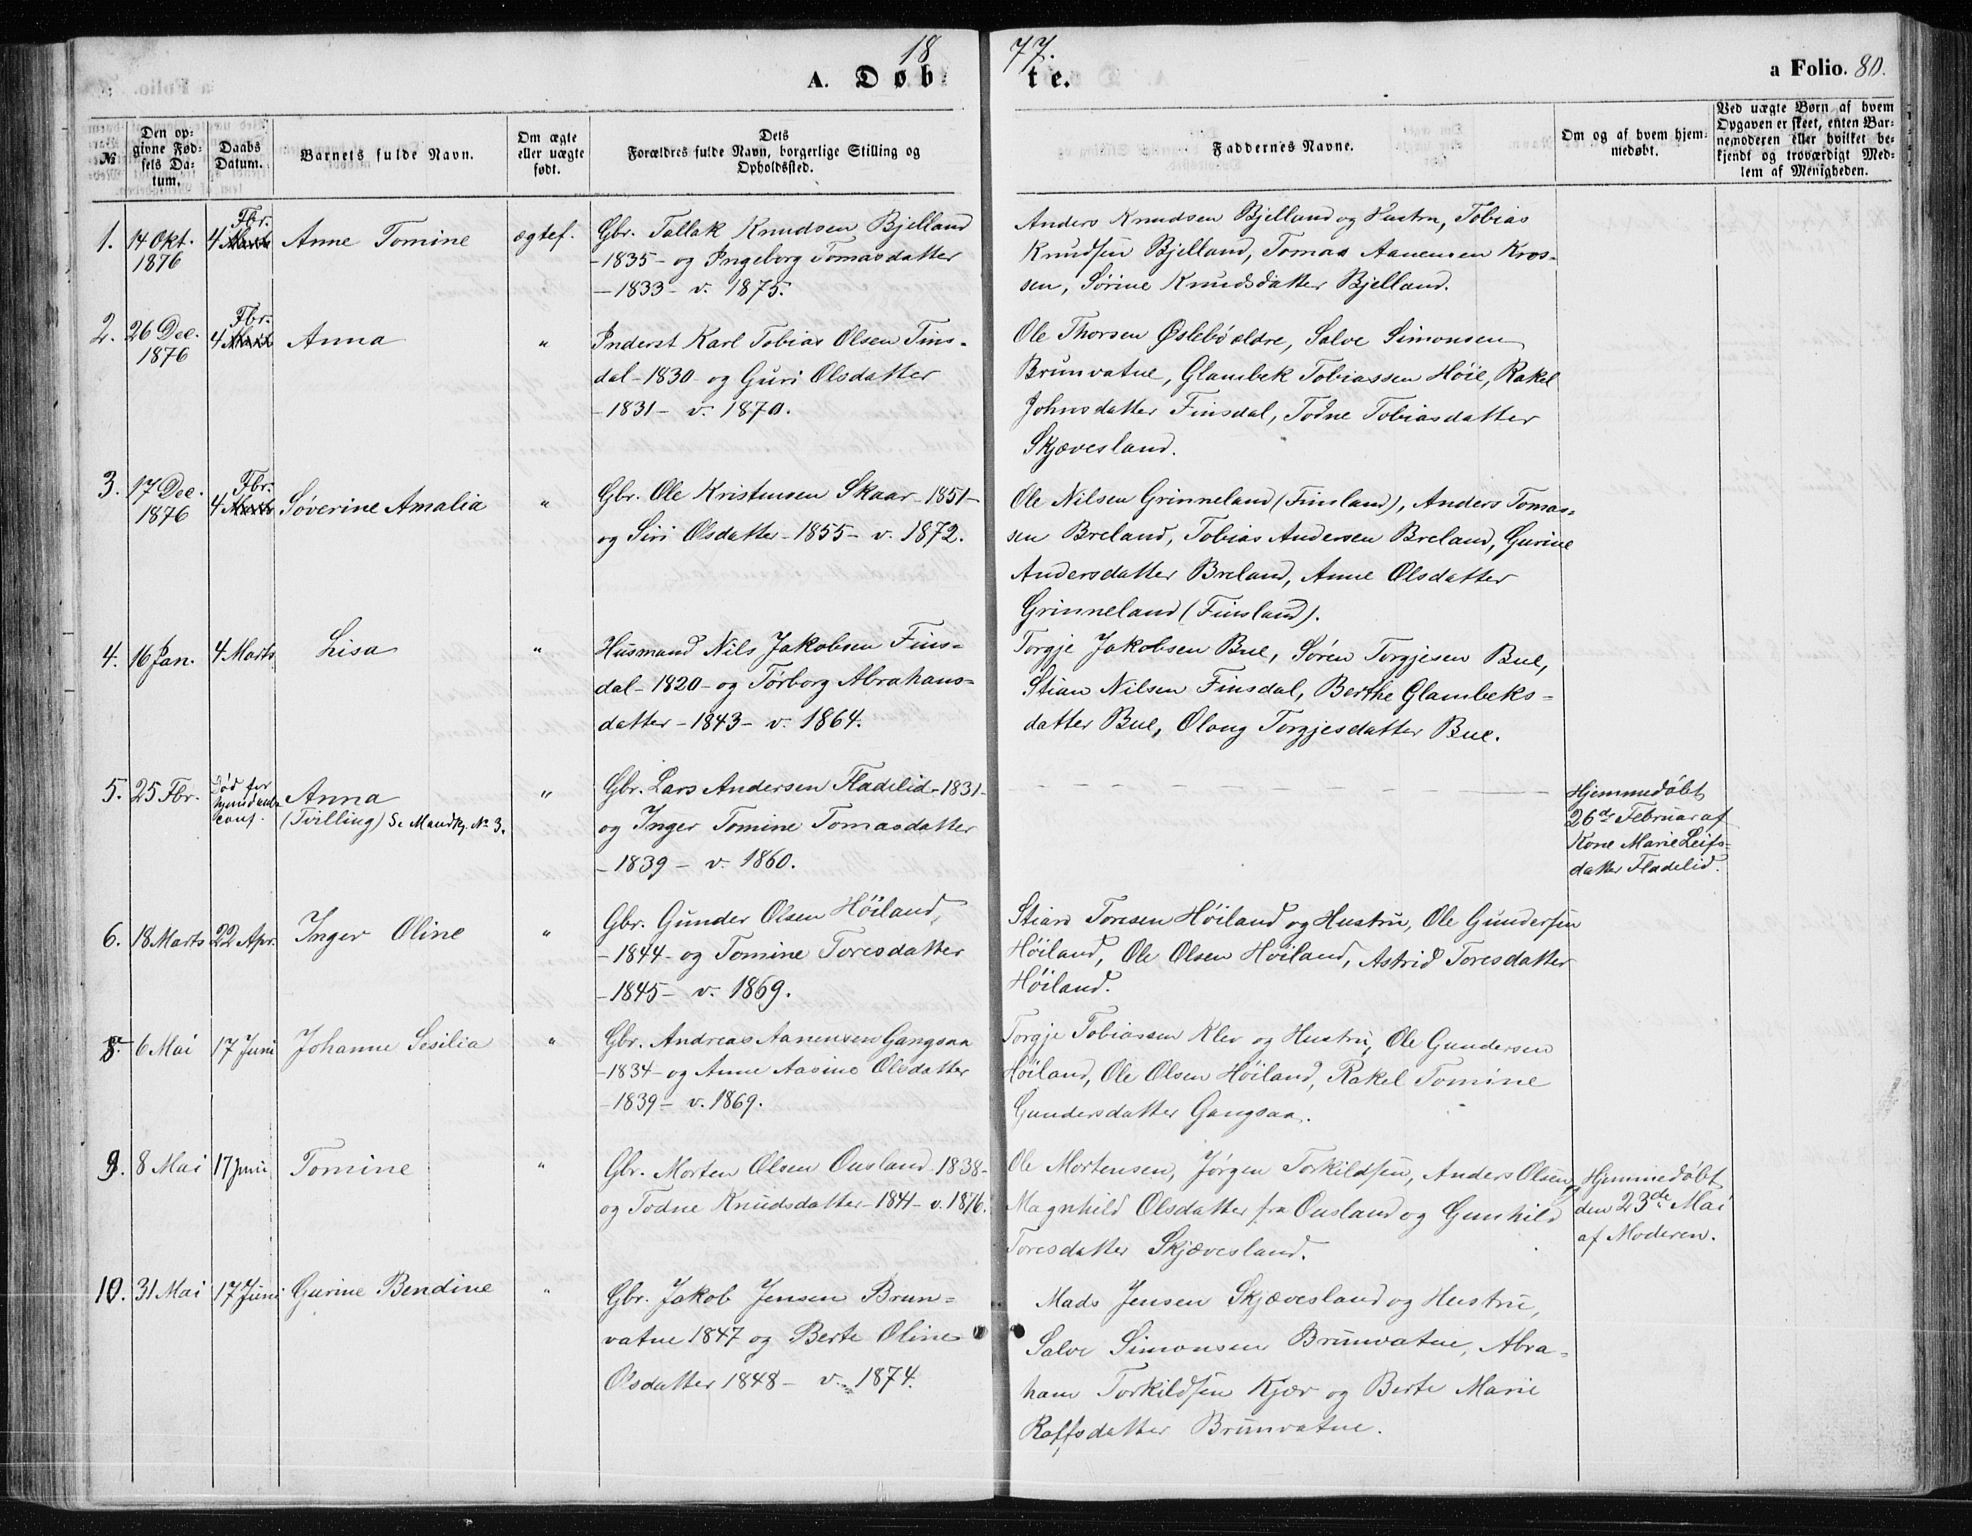 1877.
A. Døbte.
a Folio. 80.
№
Den opgivne Fødsels Datum.
Daabs Datum.
Barnets fulde Navn.
Om ægte eller uægte født.
Dets Forældres fulde Navn, borgerlige Stilling og Opholdssted.
Faddernes Navne.
Om og af hvem hjemmedøbt.
Ved uægte Børn af hvem Opgaven er skeet, enten Barnemoderen eller hvilket bekjendt og troværdigt Medlem af Menigheden.
1. 14 Okt. 1876
4 Fbr.
Anne Tomine
ægtef.
Gbr. Tallak Knudsen Bjelland
-1835- og Ingeborg Tomasdatter
-1833- v. 1875.
Anders Knudsen Bjelland og Hustru, Tobias
Knudsen Bjelland, Tomas Aanensen Kros-
sen, Sørine Knudsdatter Bjelland.
2. 26 Dec. 1876
4 Fbr.
Anna
"
Inderst Karl Tobias Olsen Fins-
dal -1830- og Guri Olsdatter
-1831- v. 1870.
Ole Thorsen Øslebø ældre, Salve Simonsen
Brunvatne, Glambek Tobiassen Høie, Rakel
Johnsdatter Finsdal, Todne Tobiasdatter
Skjævesland.
3. 17 Dec. 1876
4 Fbr.
Søverine Amalia
"
Gbr. Ole Kristensen Skaar -1851-
og Siri Olsdatter -1855- v. 1872.
Ole Nilsen Grinneland (Finsland), Anders Tomas-
sen Breland, Tobias Andersen Breland, Gurine
Andersdatter Breland, Anne Olsdatter
Grinneland (Finsland).
4. 16 Jan.
4 Marts
Lisa
"
Husmand Nils Jakobsen Fins-
dal -1820- og Torborg Abrahams-
datter -1843- v. 1864.
Torgje Jakobsen Bue, Søren Torgjesen Bue,
Stian Nilsen Finsdal, Berthe Glambeks-
datter Bue, Oloug Torgjesdatter Bue.
5. 25 Fbr.
Død før
Anna
(Tvilling) S. Mandkj. № 3.
"
Gbr. Lars Andersen Fladelid -1831-
og Inger Tomine Tomasdatter
-1839- v. 1860.
Hjemmedøbt
26de Februar af
Kone Marie Leifs-
datter Fladelid.
6. 18 Marts
22 Apr.
Inger Oline
"
Gbr. Gunder Olsen Høiland,
-1844- og Tomine Toresdatter
-1845- v. 1869.
Stian Toresen Høiland og Hustru, Ole Gundersen
Høiland, Ole Olsen Høiland, Astrid Toresdatter
Høiland.
8. 6 Mai
17 Juni
Johanne Sesilia
"
Gbr. Andreas Aanensen Gangsaa
-1834- og Anne Aasine Olsdatter
-1839- v. 1869.
Torgje Tobiassen Klev og Hustru, Ole Gundersen
Høiland, Ole Olsen Høiland, Rakel Tomine
Gundersdatter Gangsaa.
9. 8 Mai
17 Juni
Tomine
"
Gbr. Morten Olsen Ousland -1838-
og Todne Knudsdatter -1841- v. 1876.
Ole Mortensen, Jørgen Torkildsen, Anders Olsen,
Magnhild Olsdatter fra Ousland og Gunhild
Toresdatter Skjævesland.
Hjemmedøbt
den 23de Mai
af Moderen.
10. 31 Mai
17 Juni
Gurine Bendine
"
Gbr. Jakob Jensen Brun-
vatne 1847 og Berte Oline
Olsdatter 1848- v. 1874.
Mads Jensen Skjævesland og Hustru,
Salve Simonsen Brunvatne, Abra-
ham Torkildsen Kjær og Berte Marie
Roffsdatter Brunvatne.